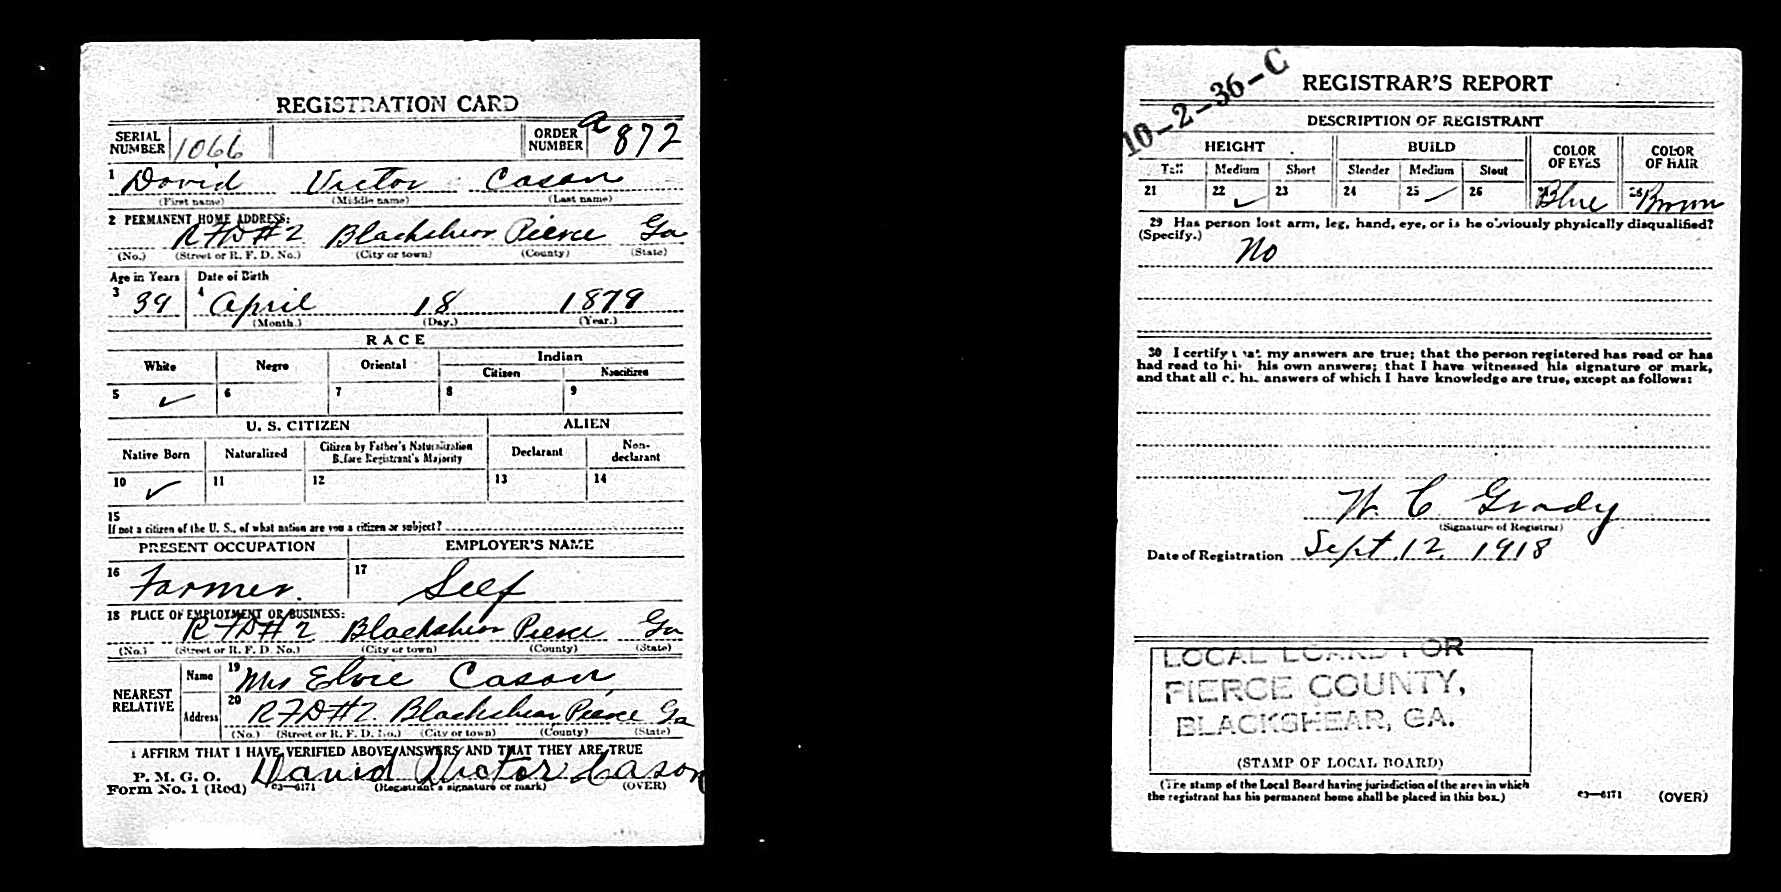 REGISTRATION CARD
SERIAL NUMBER 1066 ORDER NUMBER a 872
1 David Victor Cason
(First name) (Middle name) (Last name)
2 PERMANENT HOME ADDRESS:
RFD#2 Blackshear Pierce Ga
(No.) (Street or R. F. D. No.) (City or town) (County) (State)
Age in Years Date of Birth
3 39 4 April 18 1879
(Month.) (Day.) (Year.)
RACE
White Negro Oriental Indian
Citizen Noncitizen
5 ✓ 6 7 8 9
U. S. CITIZEN ALIEN
Native Born Naturalized Citizen by Father's Naturalization Before Registrant's Majority Declarant Non-declarant
10 ✓ 11 12 13 14
15
If not a citizen of the U. S., of what nation are you a citizen or subject?
PRESENT OCCUPATION EMPLOYER'S NAME
16 Farmer. 17 Self
18 PLACE OF EMPLOYMENT OR BUSINESS:
RFD#2 Blackshear Pierce Ga
(No.) (Street or R. F. D. No.) (City or town) (County) (State)
NEAREST RELATIVE
Name 19 Mrs Elvie Cason
Address 20 RFD#2. Blackshear Pierce Ga
(No.) (Street or R. F. D. No.) (City or town) (County) (State)
I AFFIRM THAT I HAVE VERIFIED ABOVE ANSWERS AND THAT THEY ARE TRUE
P. M. G. O.
Form No. 1 (Red) 03—6171 David Victor Cason
(Registrant's signature or mark) (OVER)
10-2-36-C
REGISTRAR'S REPORT
DESCRIPTION OF REGISTRANT
HEIGHT BUILD COLOR OF EYES COLOR OF HAIR
Tall Medium Short Slender Medium Stout
21 22 ✓ 23 24 25 ✓ 26 27 Blue 28 Brown
29 Has person lost arm, leg, hand, eye, or is he obviously physically disqualified?
(Specify.) No
30 I certify that my answers are true; that the person registered has read or has
had read to him his own answers; that I have witnessed his signature or mark,
and that all of his answers of which I have knowledge are true, except as follows:
W C Grady
(Signature of Registrar)
Date of Registration Sept 12 1918
LOCAL BOARD FOR
PIERCE COUNTY,
BLACKSHEAR, GA.
(STAMP OF LOCAL BOARD)
(The stamp of the Local Board having jurisdiction of the area in which
the registrant has his permanent home shall be placed in this box.)
03—6171 (OVER)